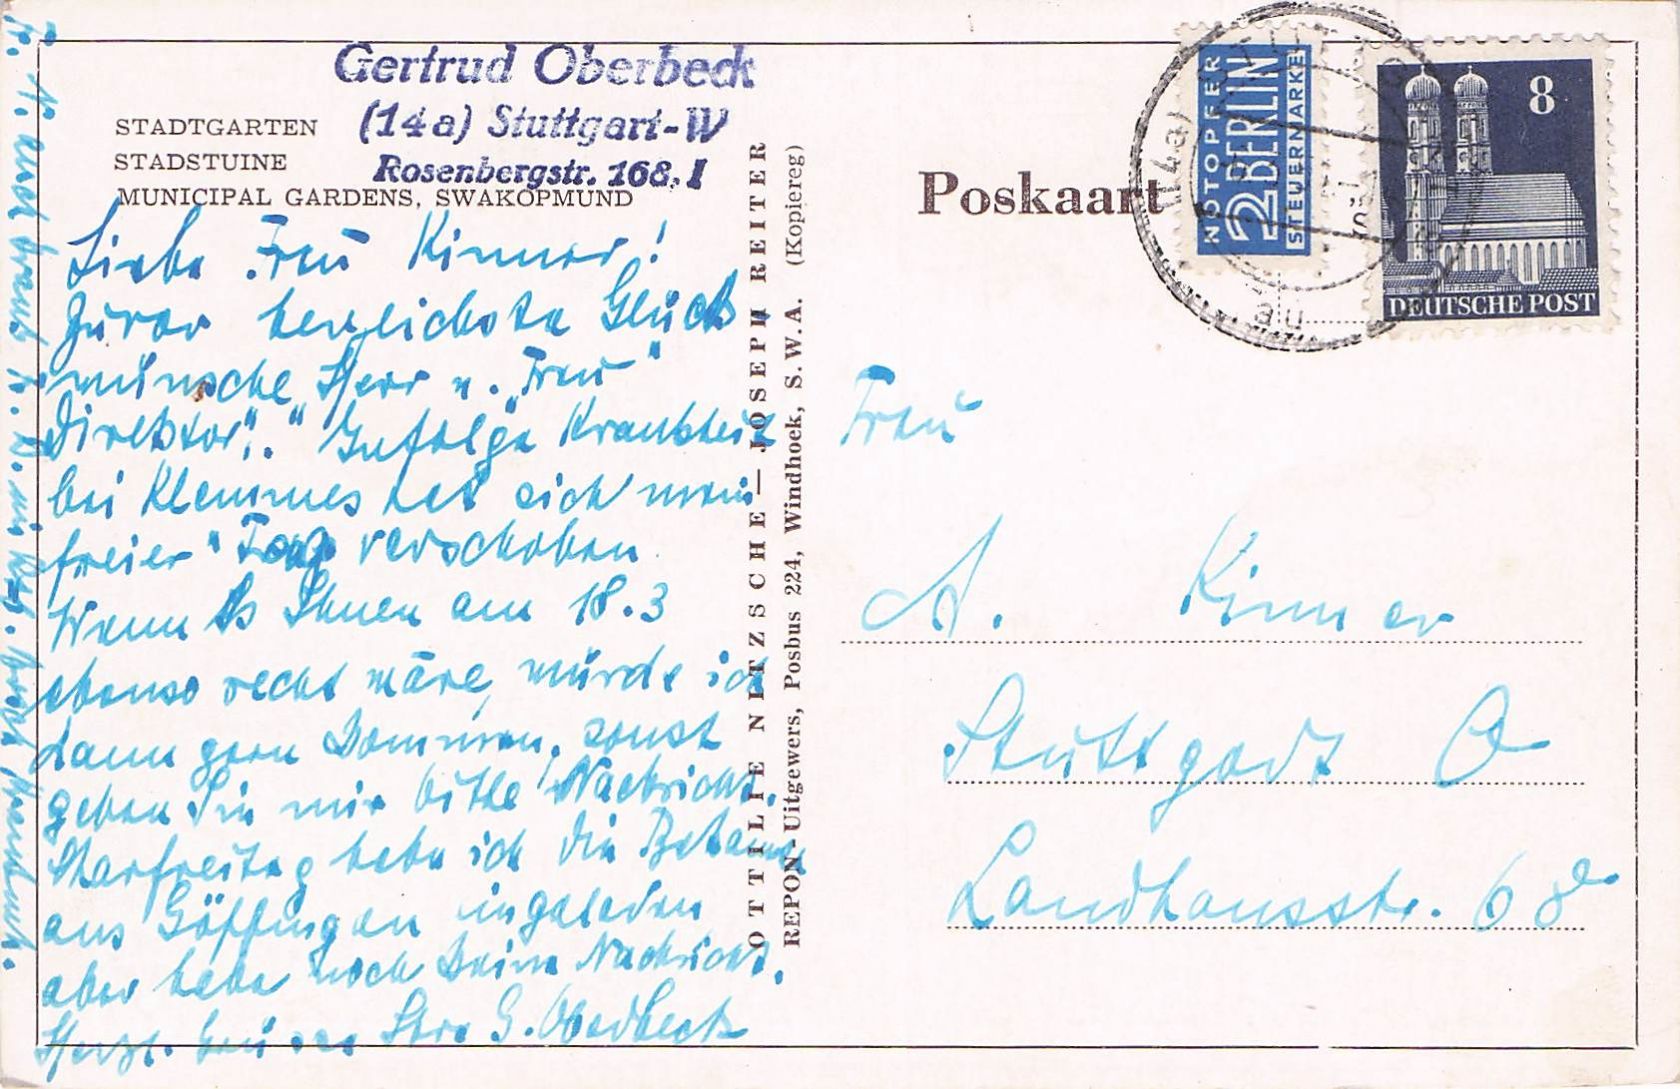 Gertrud Oberbeck
(14a) Stuttgart-W
Rosenbergstr. 168, I
STADTGARTEN
STADSTUINE
MUNICIPAL GARDENS, SWAKOPMUND
Liebe Frau Kinner!
Zuvor herzlichste Glück-
wünsche Herr u. "Frau"
Direktor". "Infolge Krankheit
bei Klemmes hat sich mein
freier "Tag verschoben.
Wenn es Ihnen am 18.3
ebenso recht wäre, würde ich
dann gern kommen, sonst
geben Sie mir bitte Nachricht.
Karfreitag habe ich die
aus Göppingen eingeladen
aber habe noch keine Nachricht.
Herzl. Grüsse Ihre G. Oberbeck
OTTILIE NITZSCHE — JOSEPH REITER
REPON-Uitgewers, Posbus 224, Windhoek, S.W.A. (Kopiereg)
Poskaart
NOTOPFER
2 BERLIN
STEUERMARKE
8
DEUTSCHE POST
(14a) STUTTG
Frau
A. Kinner
Stuttgart O
Landhausstr.